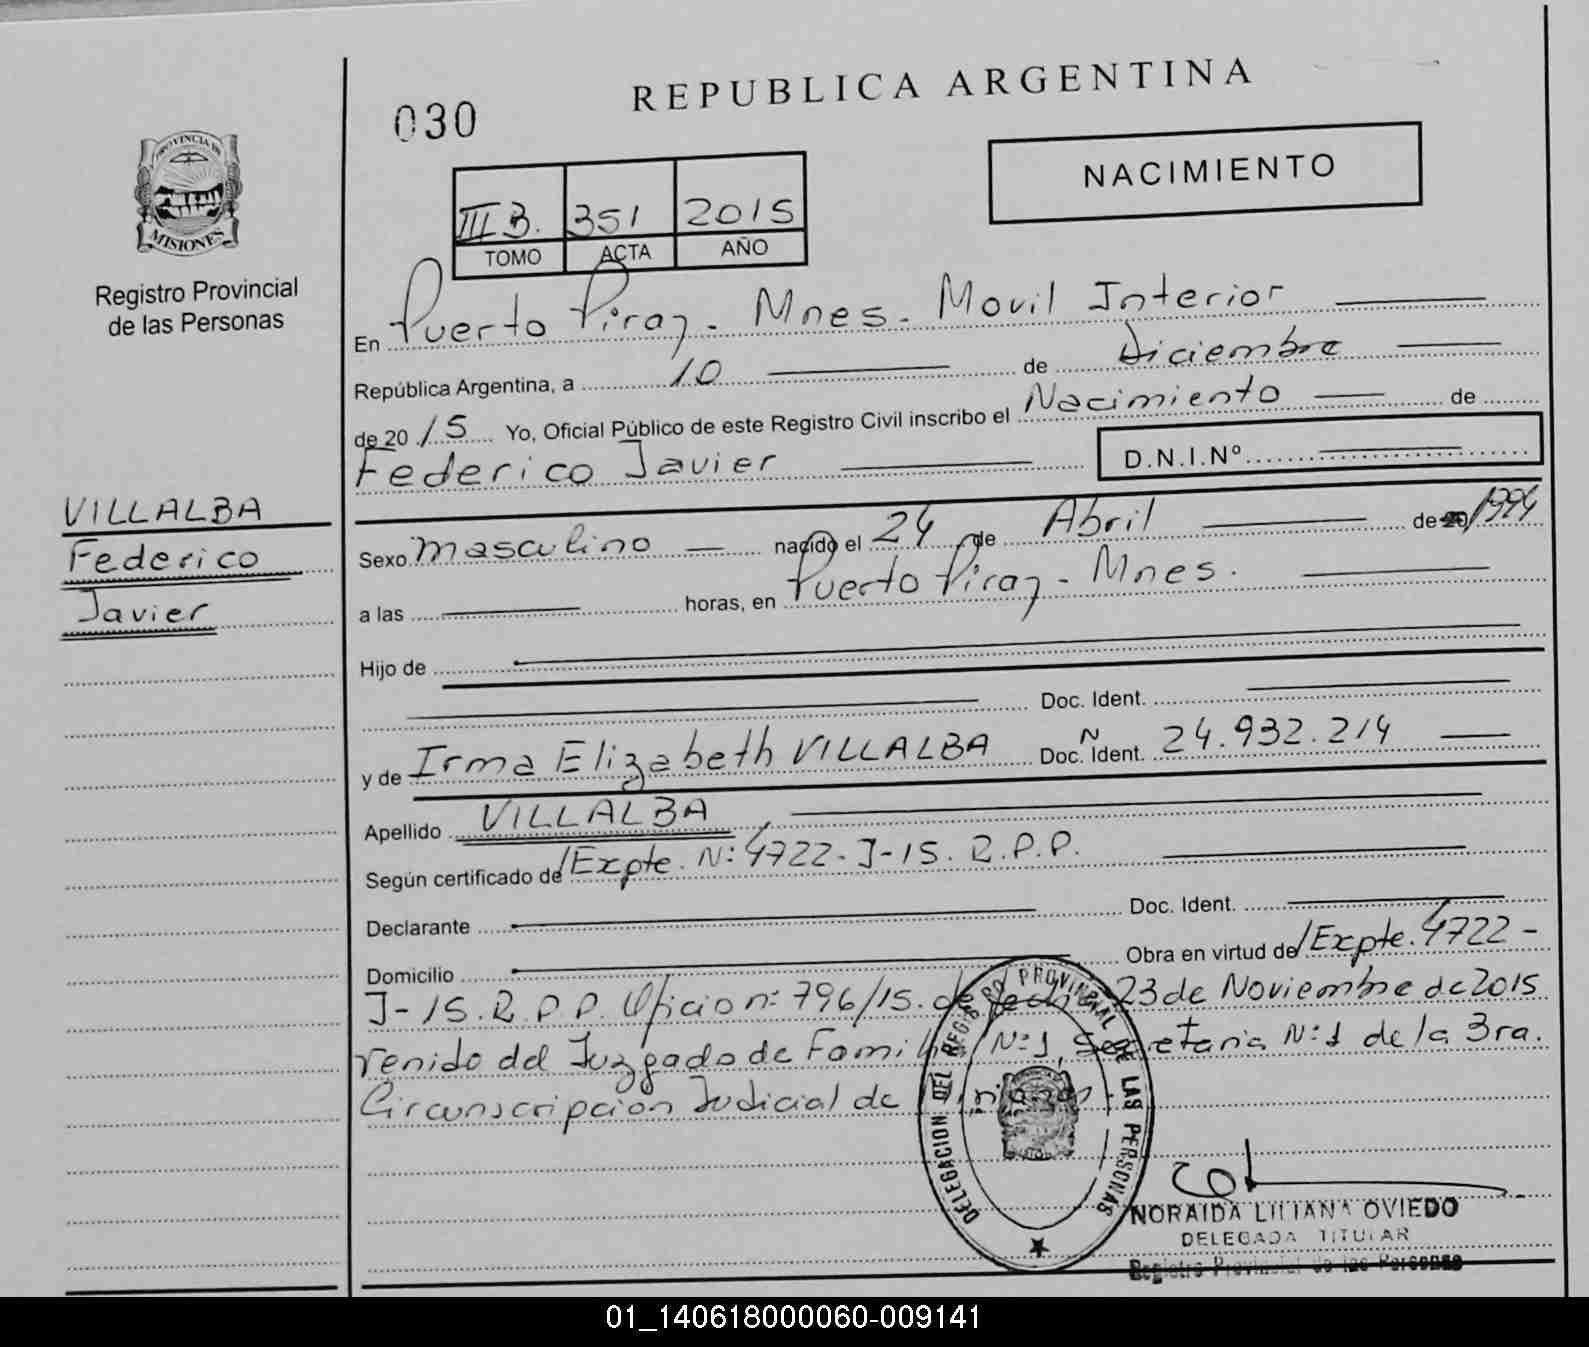 REPUBLICA ARGENTINA
030
NACIMIENTO
PROVINCIA DE
MISIONES
Registro Provincial
de las Personas
III B. 351 2015
TOMO ACTA AÑO
En Puerto Piray - Mnes - Movil Interior
República Argentina, a 10 de Diciembre
de 2015 Yo, Oficial Público de este Registro Civil inscribo el Nacimiento de
Federico Javier D.N.I.Nº
VILLALBA
Federico
Javier
Sexo masculino nacido el 24 de Abril de 1994
a las horas, en Puerto Piray - Mnes.
Hijo de
Doc. Ident.
y de Irma Elizabeth VILLALBA Doc. N Ident. 24.932.214
Apellido VILLALBA
Según certificado de/Expte. Nº: 4722-J-15. R.P.P.
Declarante Doc. Ident.
Domicilio Obra en virtud de/Expte. 4722-
J-15. R.P.P. Oficio nº: 796/15. de fecha 23 de Noviembre de 2015
venido del Juzgado de Familia Nº:1, Secretaria Nº:1 de la 3ra.
Circunscripción Judicial de Misiones.
DELEGACION DEL REGISTRO PROVINCIAL DE LAS PERSONAS
NORAIDA LILIANA OVIEDO
DELEGADA TITULAR
Registro Provincial de las Personas
01_140618000060-009141